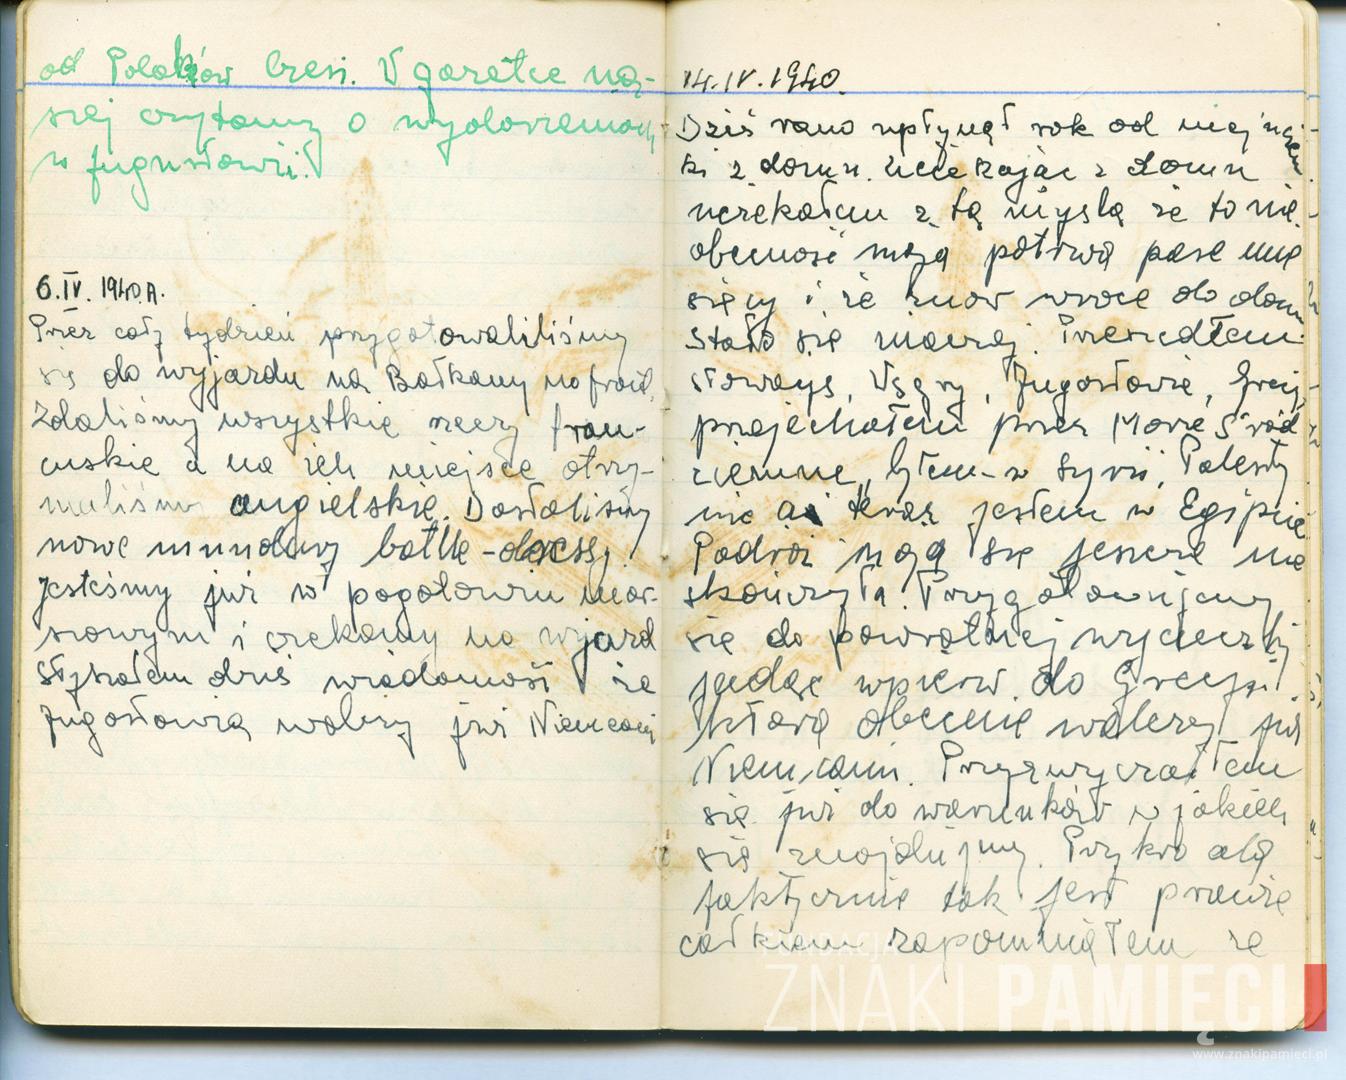 od Polaków bzesi. W gazetce na-
szej czytamy o wydarzeniach
w Jugosławii.
6.IV. 1940 A.
Przez cały tydzień przygotowaliliśmy
się do wyjazdu na Bałkany na front.
Zdaliśmy wszystkie rzeczy fran-
cuskie a na ich miejsce otrzy-
maliśmy angielskie. Dostaliśmy
nowe mundury battle-dressy.
Jesteśmy już w pogotowiu mar-
szowym i czekamy na wyjazd
Słyszałem dziś wiadomość że
Jugosławia walczy już Niemcami
14.IV.1940.
Dziś rano upłynął rok od mej uciecz
ki z domu. Uciekając z domu
uciekałem z tą myślą że to nie
obecność moja potrwa parę mie
sięcy i że znów wrócę do domu
Stało się inaczej. Przeszedłem
Słowację, Węgry, Jugosławię, Grecję,
przejechałem przez Morze Śród
ziemne, byłem w Syrii, Palesty
nie a teraz jestem w Egipcie
Podróż moja się jeszcze nie
skończyła. Przygotowujemy
się do powrotnej wycieczki
jadąc wpierw do Grecji.
która obecnie walczy już
Niemcami. Przyzwyczaiłem
się już do warunków w jakich
się znajdujmy. Przykro ale
faktycznie tak jest prawie
całkiem zapomniałem że
FUNDACJA
ZNAKI PAMIĘCI
www.znakipamieci.pl